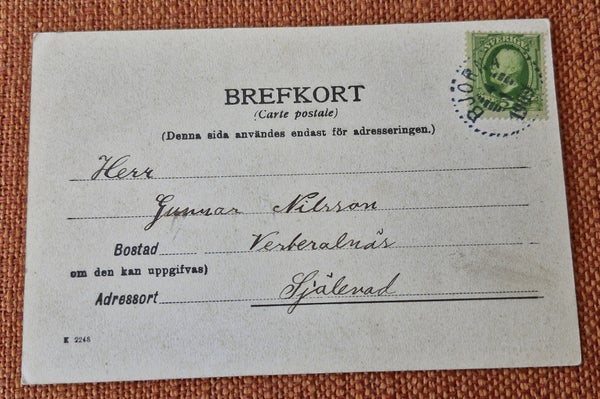 SVERIGE
BJÖR
BREFKORT
(Carte postale)
(Denna sida användes endast för adresseringen.)
Herr
Gunnar Nilsson
Bostad Verberalnäs
om den kan uppgifvas)
Adressort Själevad
K 2248